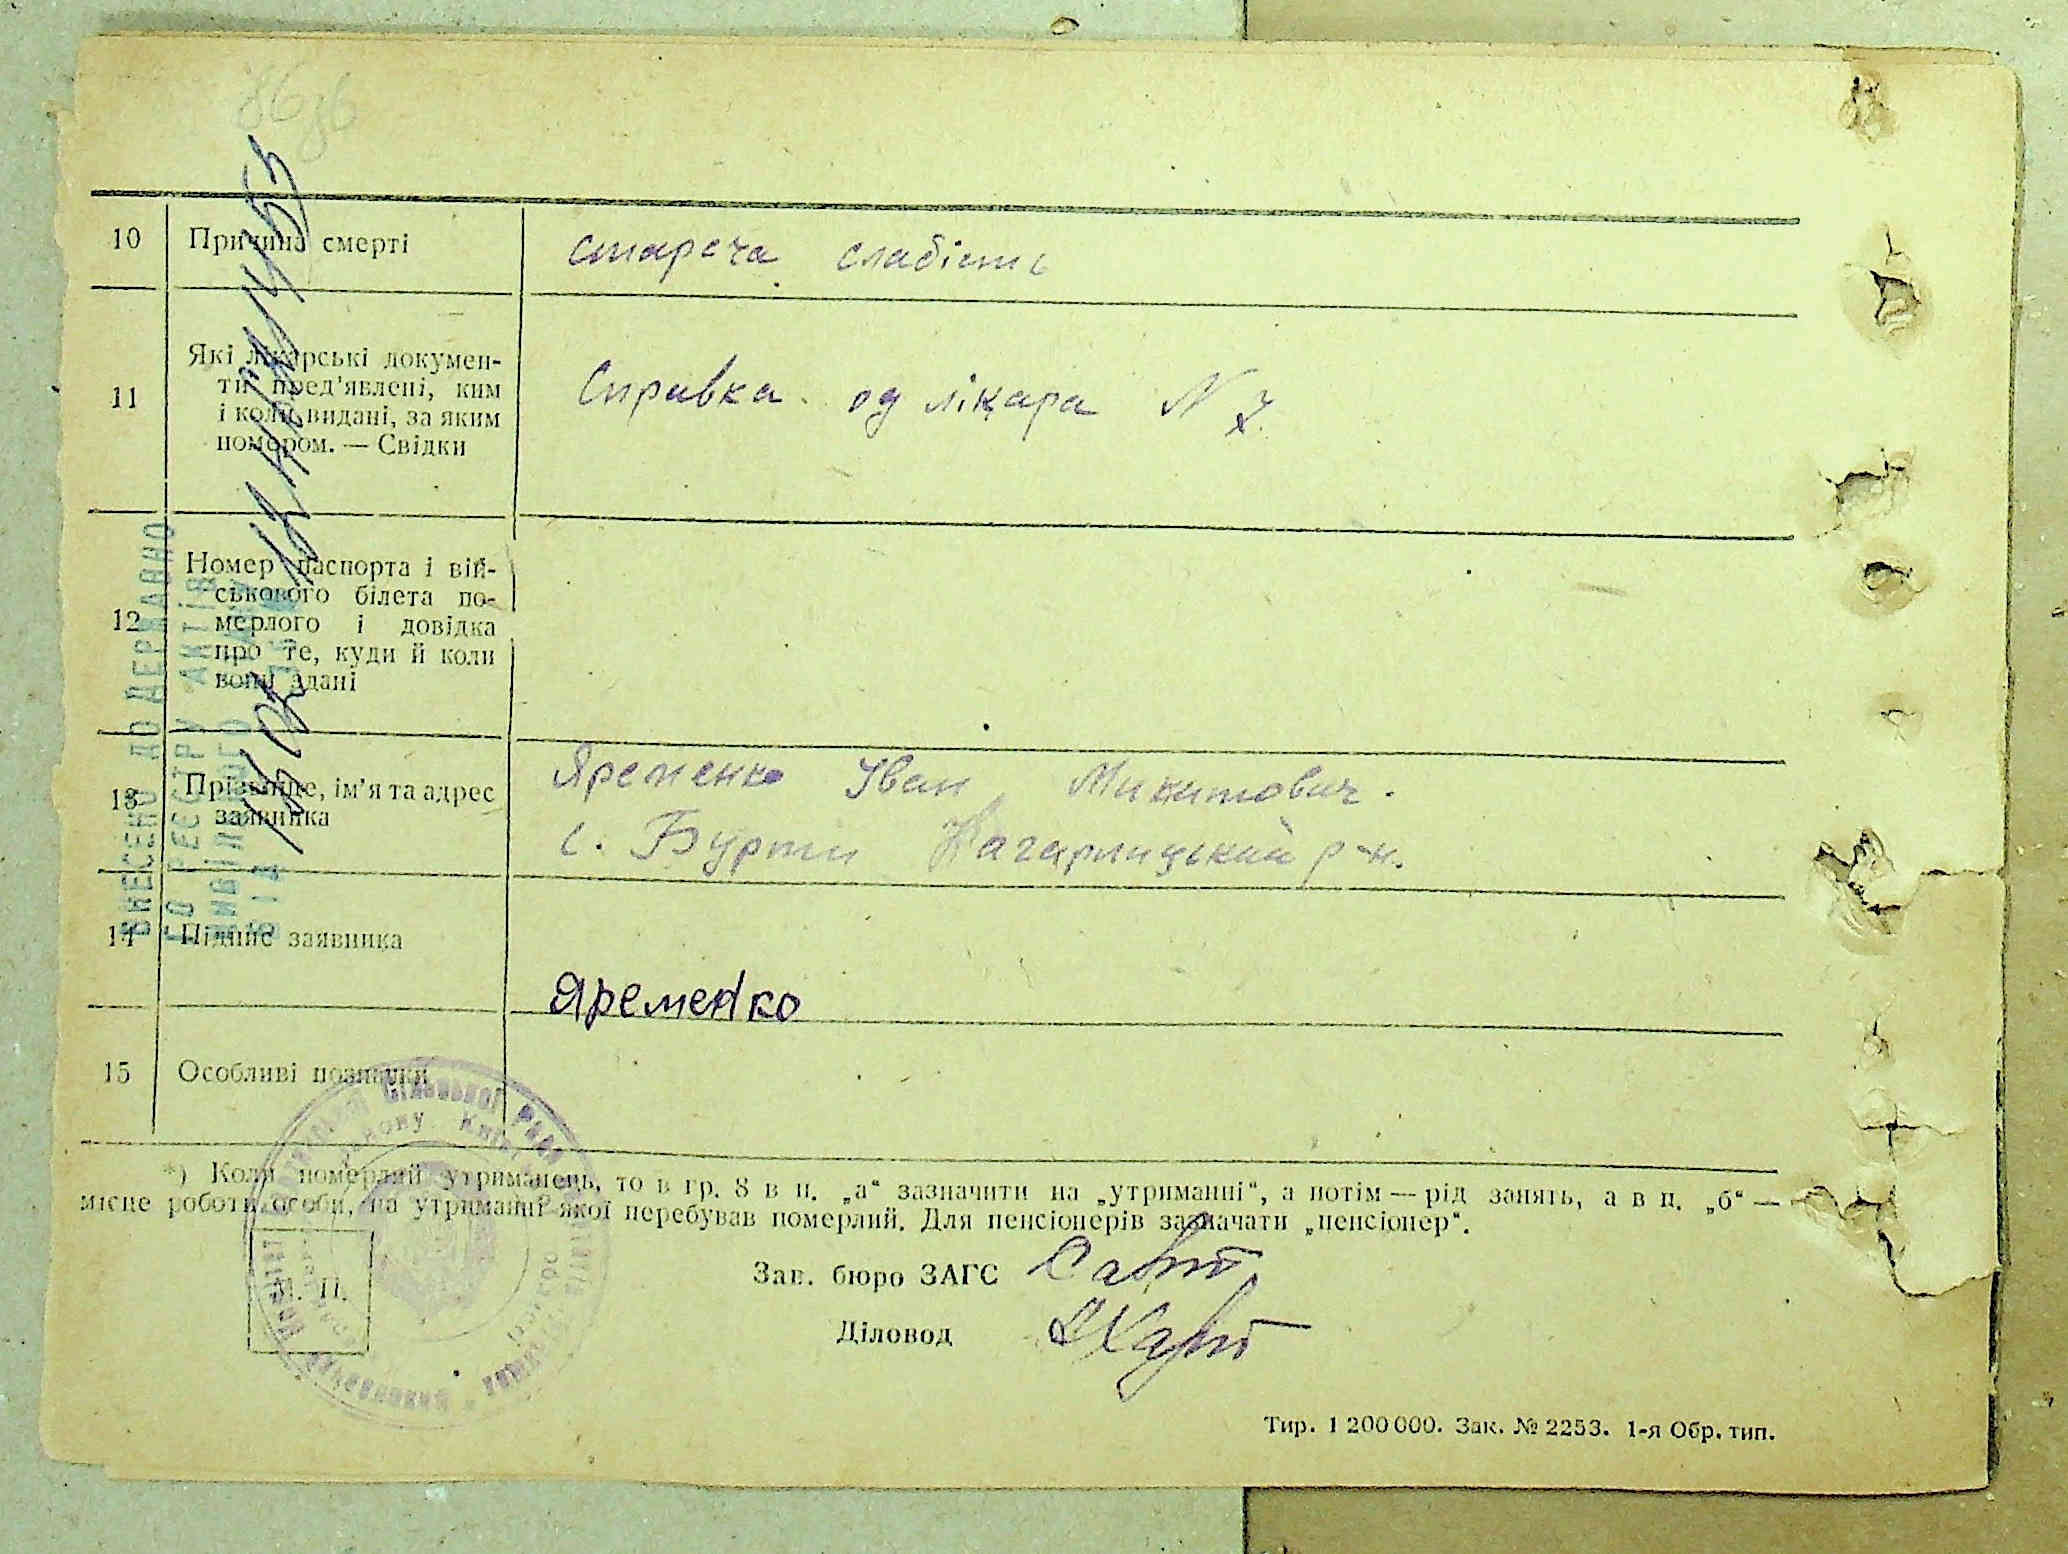 86 86
10 Причина смерті стареча слабість
11 Які лікарські докумен-
ти пред'явлені, ким
і коли видані, за яким
номером. — Свідки
Справка од лікара N 7.
12 Номер паспорта і вій-
ськового білета по-
мерлого і довідка
про те, куди й коли
вони здані
13 Прізвище, ім'я та адрес
заявника
Яременко Іван Микитович.
с. Бурти Кагарлицький р-н.
14 Підпис заявника
Яременко
15 Особливі позначки
ВНЕСЕНО ДО ДЕРЖАВНО
ГО РЕЄСТРУ АКТІВ
ЦИВІЛЬНОГО
ВІД
*) Коли померлий утриманець, то в гр. 8 в п. „а“ зазначити на „утриманні“, а потім — рід занять, а в п. „б“ —
місце роботи особи, на утриманні якої перебував померлий. Для пенсіонерів зазначати „пенсіонер“.
М. П.
Зав. бюро ЗАГС
Діловод
Тир. 1 200 000. Зак. № 2253. 1-я Обр. тип.